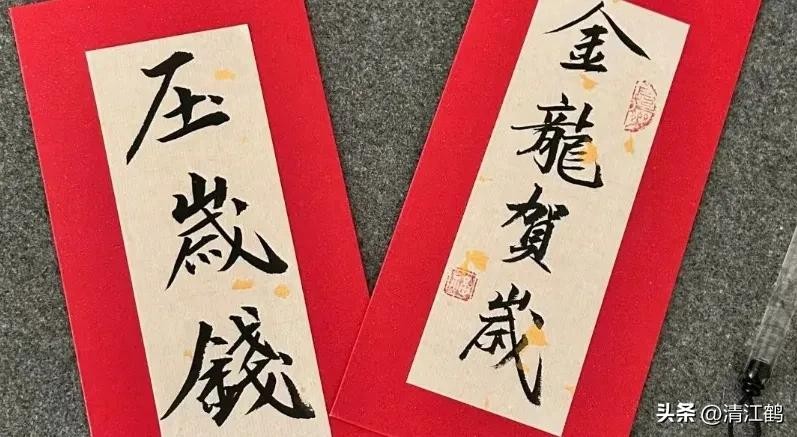 压歲錢
金龍賀歲
头条 @清江鹤